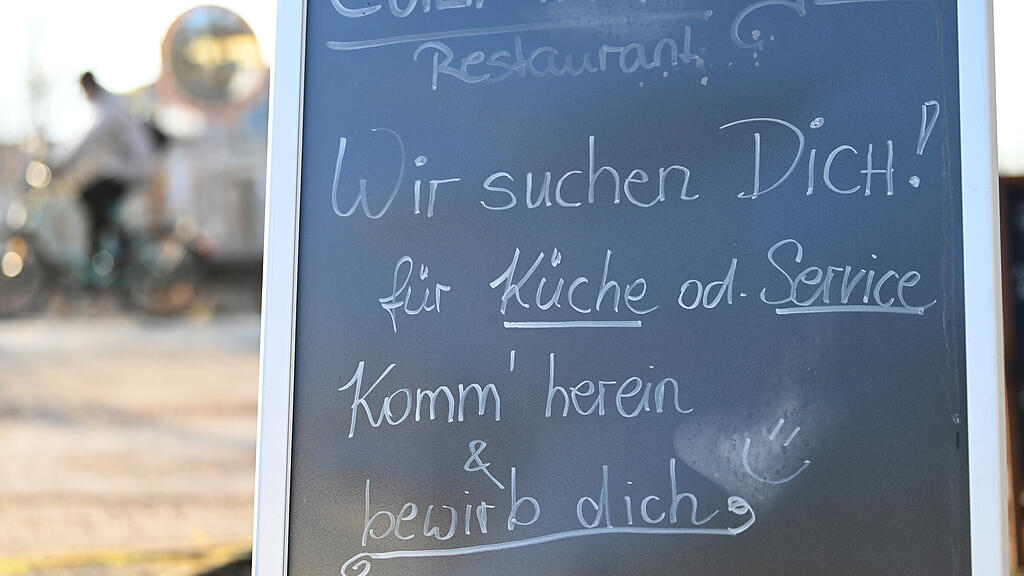 Restaurant
Wir suchen DICH!
für Küche od. Service
Komm' herein
&
bewirb dich